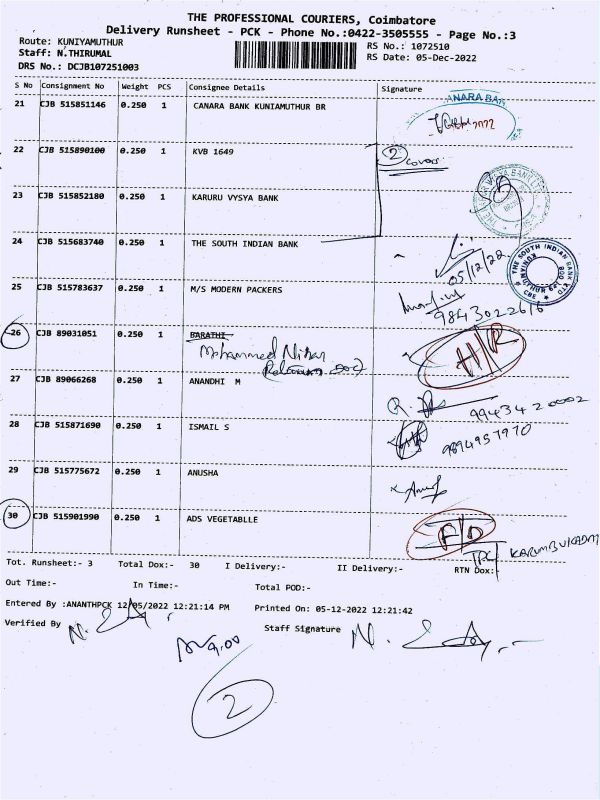 THE PROFESSIONAL COURIERS, Coimbatore
Delivery Runsheet - PCK - Phone No.:0422-3505555 - Page No.:3
Route: KUNIYAMUTHUR RS No.: 1072510
Staff: N.THIRUMAL RS Date: 05-Dec-2022
DRS No.: DCJB107251003
S No Consignment No Weight PCS Consignee Details Signature
21 CJB 515851146 0.250 1 CANARA BANK KUNIAMUTHUR BR
22 CJB 515890100 0.250 1 KVB 1649 2 covers
23 CJB 515852180 0.250 1 KARURU VYSYA BANK
24 CJB 515683740 0.250 1 THE SOUTH INDIAN BANK 05/12/22
THE SOUTH INDIAN BANK LTD
25 CJB 515783637 0.250 1 M/S MODERN PACKERS 9843022616
26 CJB 89031051 0.250 1 BARATHI H/R
Mohammed Nihar
27 CJB 89066268 0.250 1 ANANDHI M 99434 20002
28 CJB 515871690 0.250 1 ISMAIL S 9894957970
29 CJB 515775672 0.250 1 ANUSHA
30 CJB 515901990 0.250 1 ADS VEGETABLLE F/D
TPC KARUMBUKADAI
Tot. Runsheet:- 3 Total Dox:- 30 I Delivery:- II Delivery:- RTN Dox:-
Out Time:- In Time:- Total POD:-
Entered By :ANANTHPCK 12/05/2022 12:21:14 PM Printed On: 05-12-2022 12:21:42
Verified By Staff Signature
9.00
2